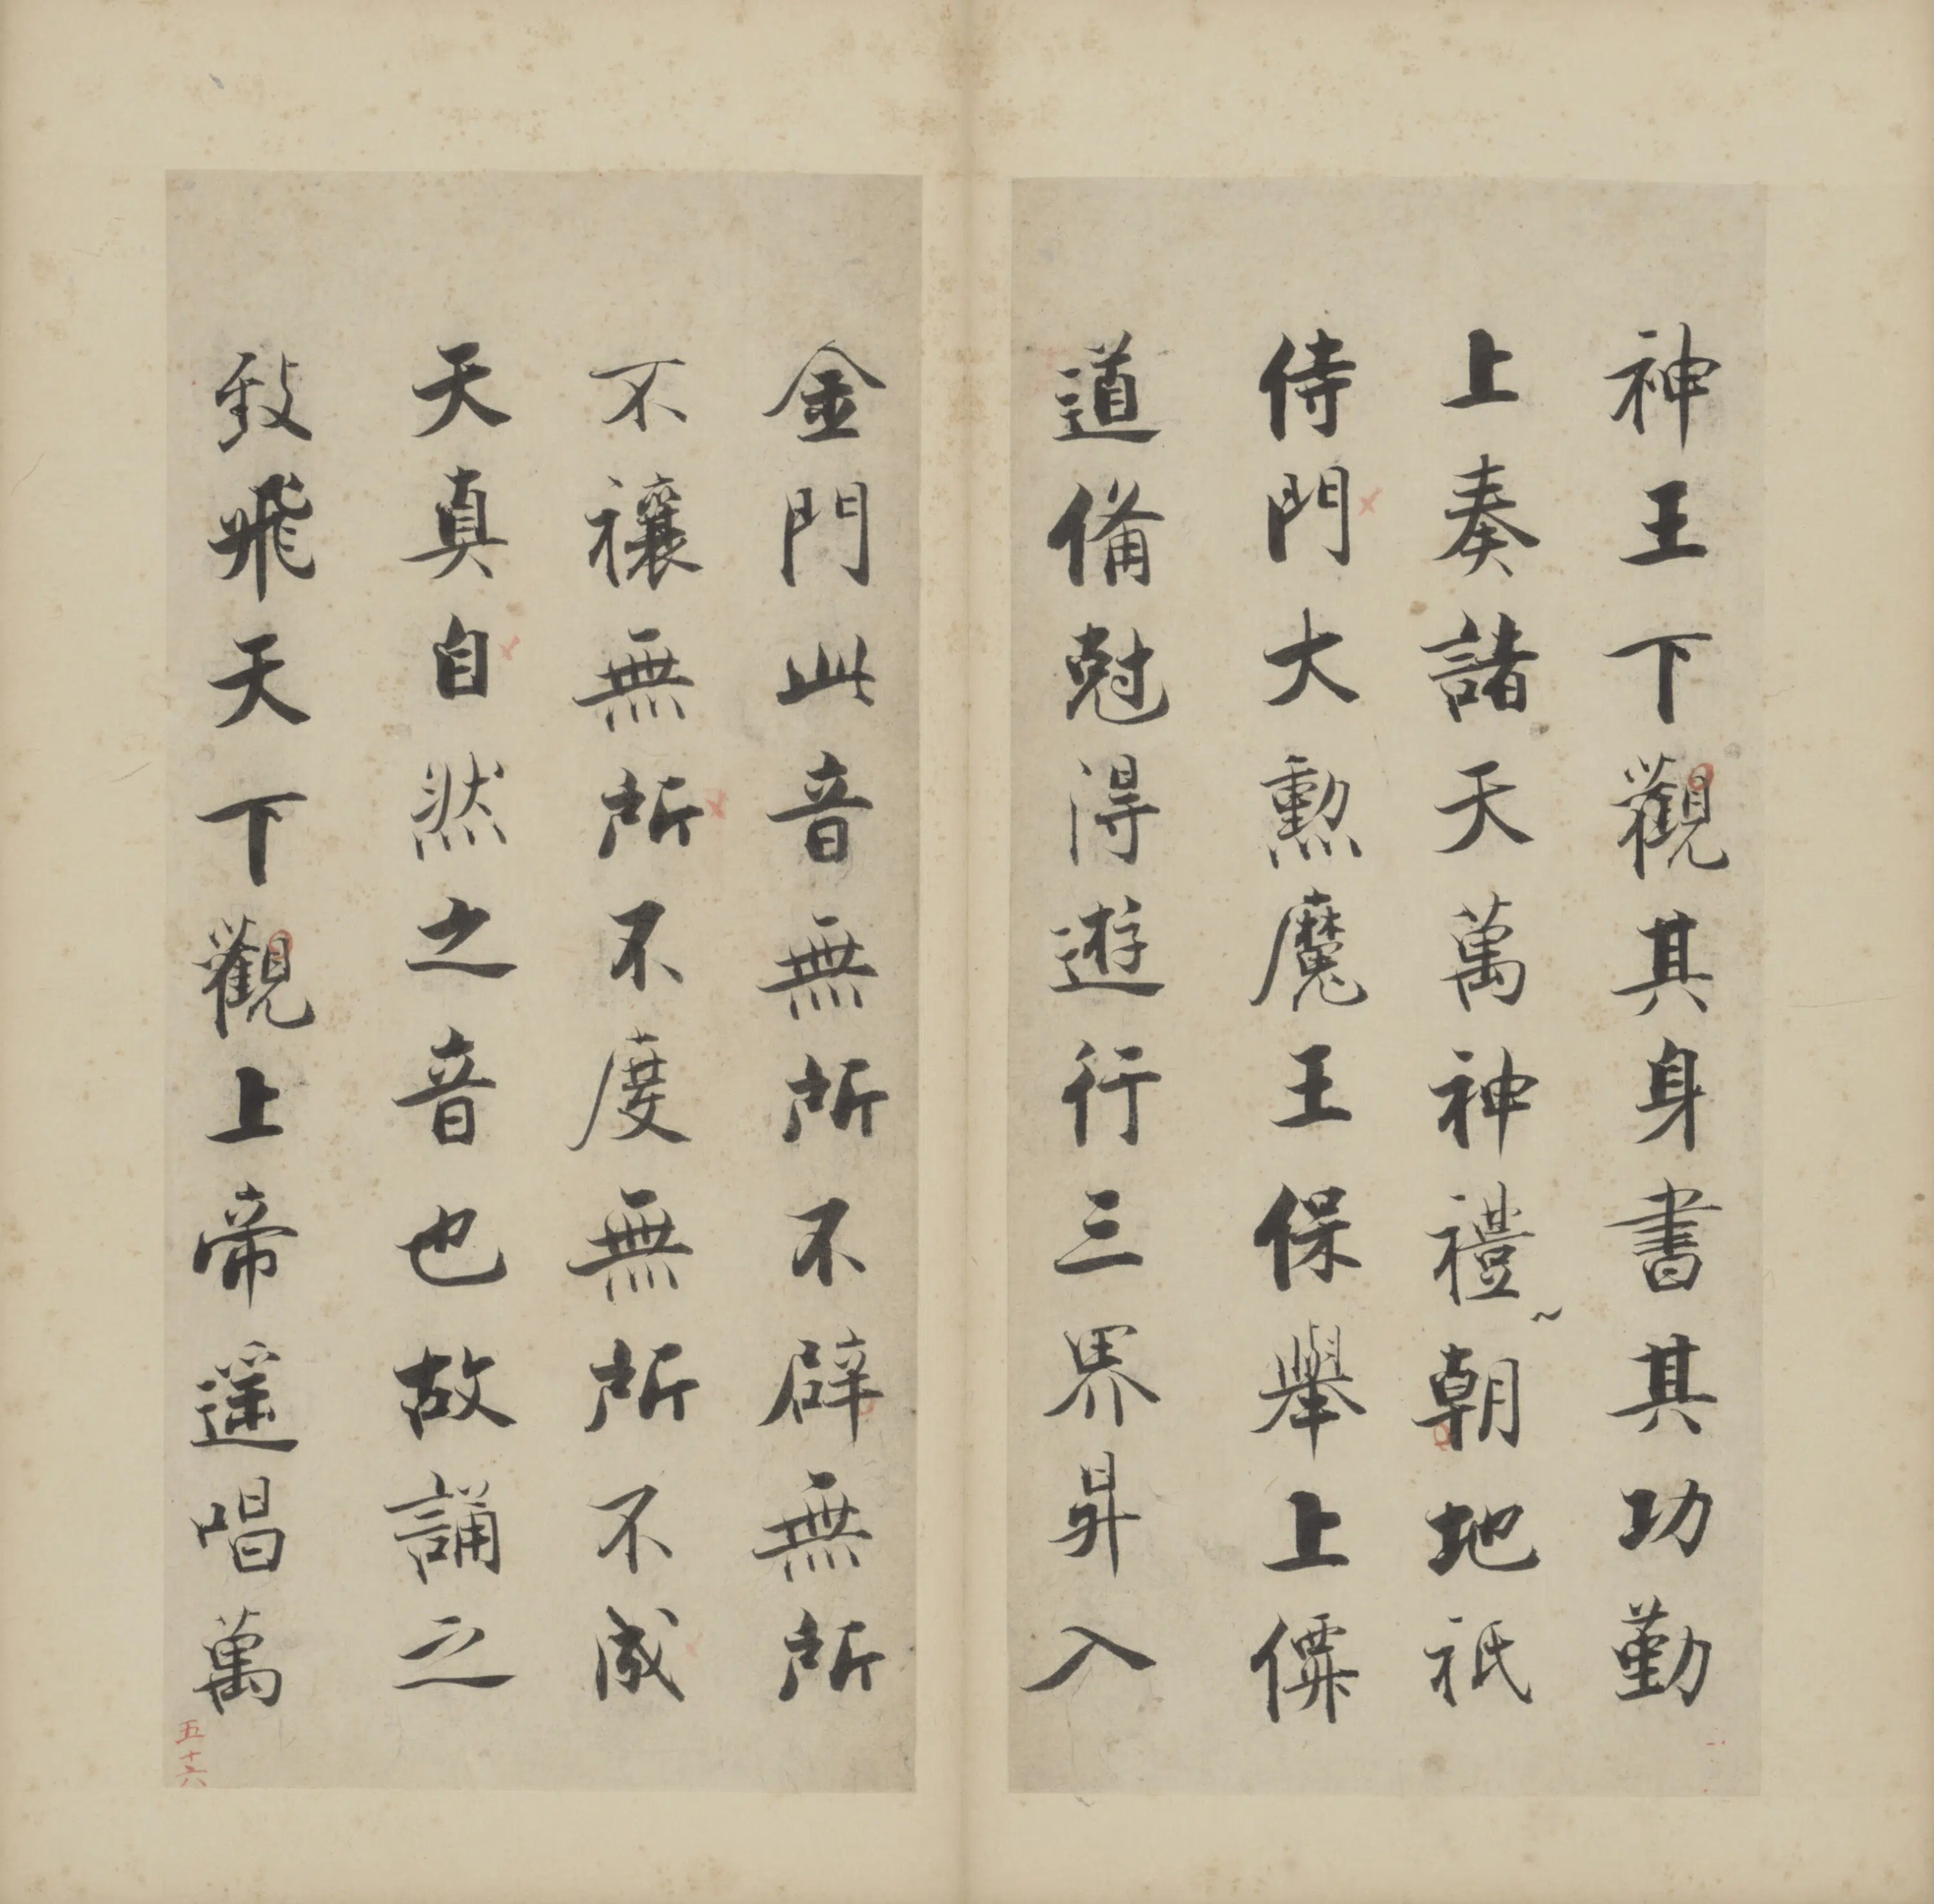 神王下觀其身書其功勤
上奏諸天萬神禮朝地祇
侍門大勳魔王保舉上僊
道備尅得遊行三界昇入
金門此音無所不辟無所
不禳無所不度無所不成
天真自然之音也故誦之
致飛天下觀上帝遥唱萬
五十六